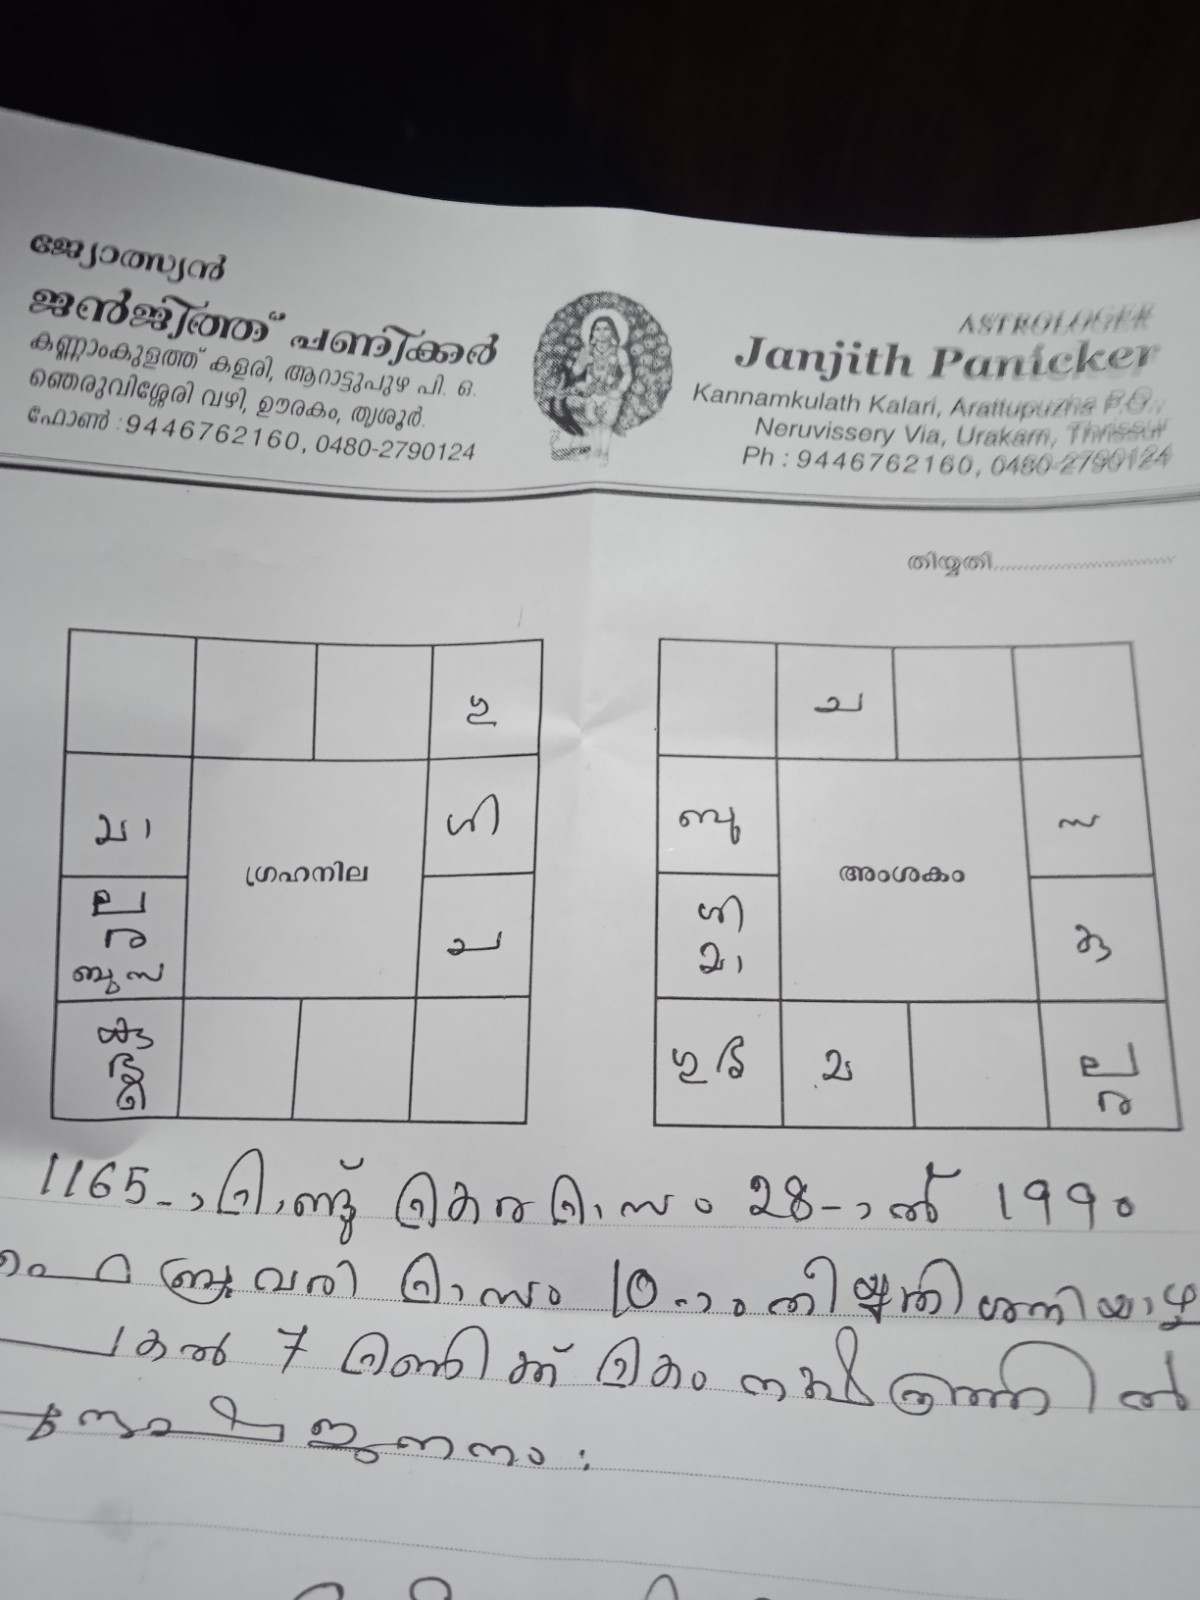 ജ്യോത്സ്യൻ
ജൻജിത്ത് പണിക്കർ
കണ്ണാംകുളത്ത് കളരി, ആറാട്ടുപുഴ പി. ഒ.
ഞെരുവിശ്ശേരി വഴി, ഊരകം, തൃശൂർ.
ഫോൺ : 9446762160, 0480-2790124
ASTROLOGER
Janjith Panicker
Kannamkulath Kalari, Arattupuzha P.O.,
Neruvissery Via, Urakam, Thrissur
Ph : 9446762160, 0480-2790124
തിയ്യതി
ഗു
മാ
ശി
ഗ്രഹനില
ല
ര
ബു സ
ച
കു
ച
ബു
സ
അംശകം
ശി
മാ
കു
ഗു
ല
ര
1165-ാമാണ്ടു മകരമാസം 28-ാം 1990
ഫെബ്രുവരി മാസം 10-ാം തിയ്യതി ശനിയാഴ്ച
പകൽ 7 മണിക്ക് മകം നക്ഷത്രത്തിൽ
ജനനം :